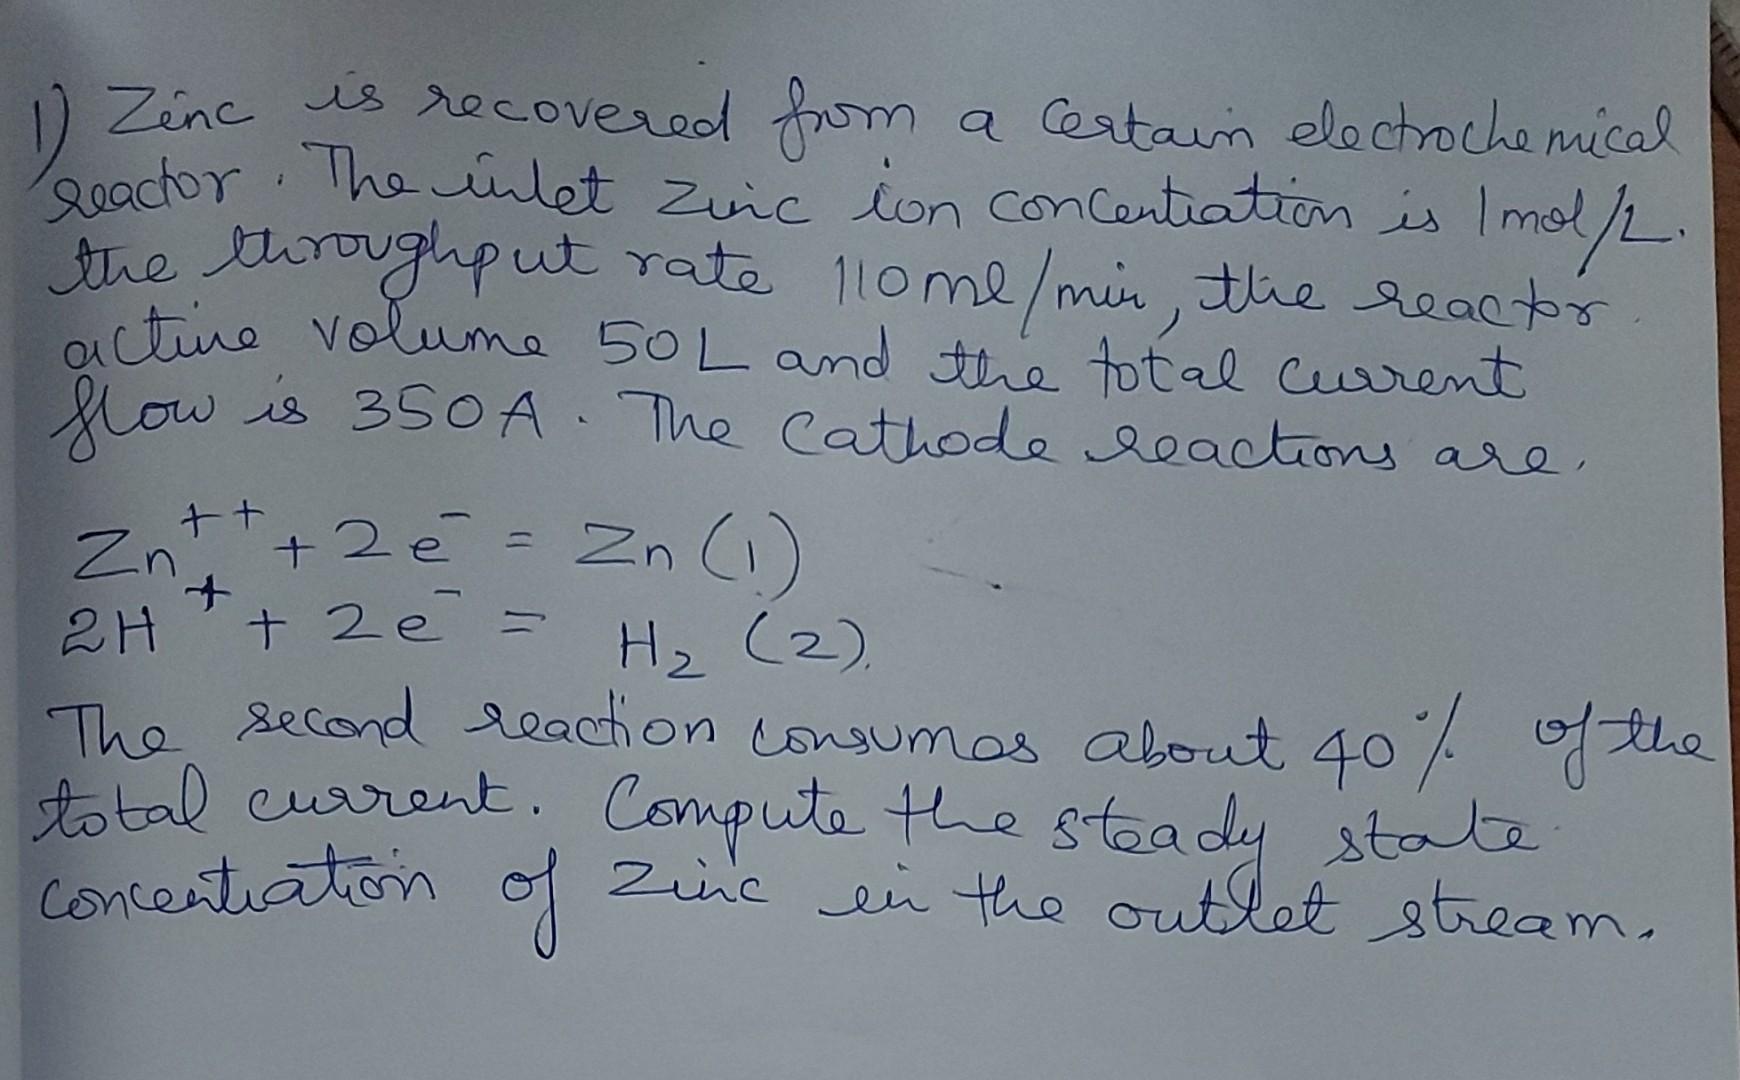 1) Zinc is recovered from a certain electrochemical
reactor. The inlet zinc ion concentration is 1 mol/L.
the throughput rate 110 ml/min, the reactor
active volume 50 L and the total current
flow is 350 A. The Cathode reactions are.
Zn++ + 2e- = Zn (1)
2H+ + 2e- = H2 (2).
The second reaction consumes about 40% of the
total current. Compute the steady state
concentration of zinc in the outlet stream.